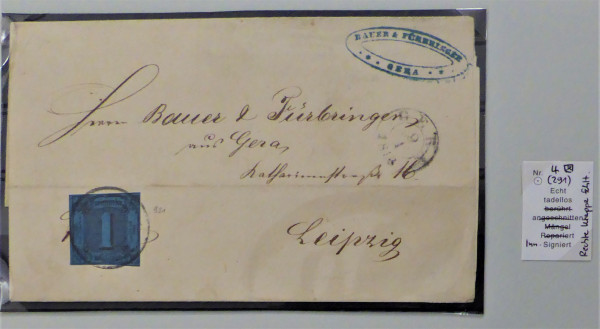 BAUER & FÜRBRINGER
GERA
Herrn Bauer & Fürbringer,
aus Gera,
Katharinenstraße 16.
Leipzig
1
291
GERA
Nr. 4
(291)
Echt
tadellos
berührt
angeschnitten
Mängel
Repariert
Signiert
Rechte